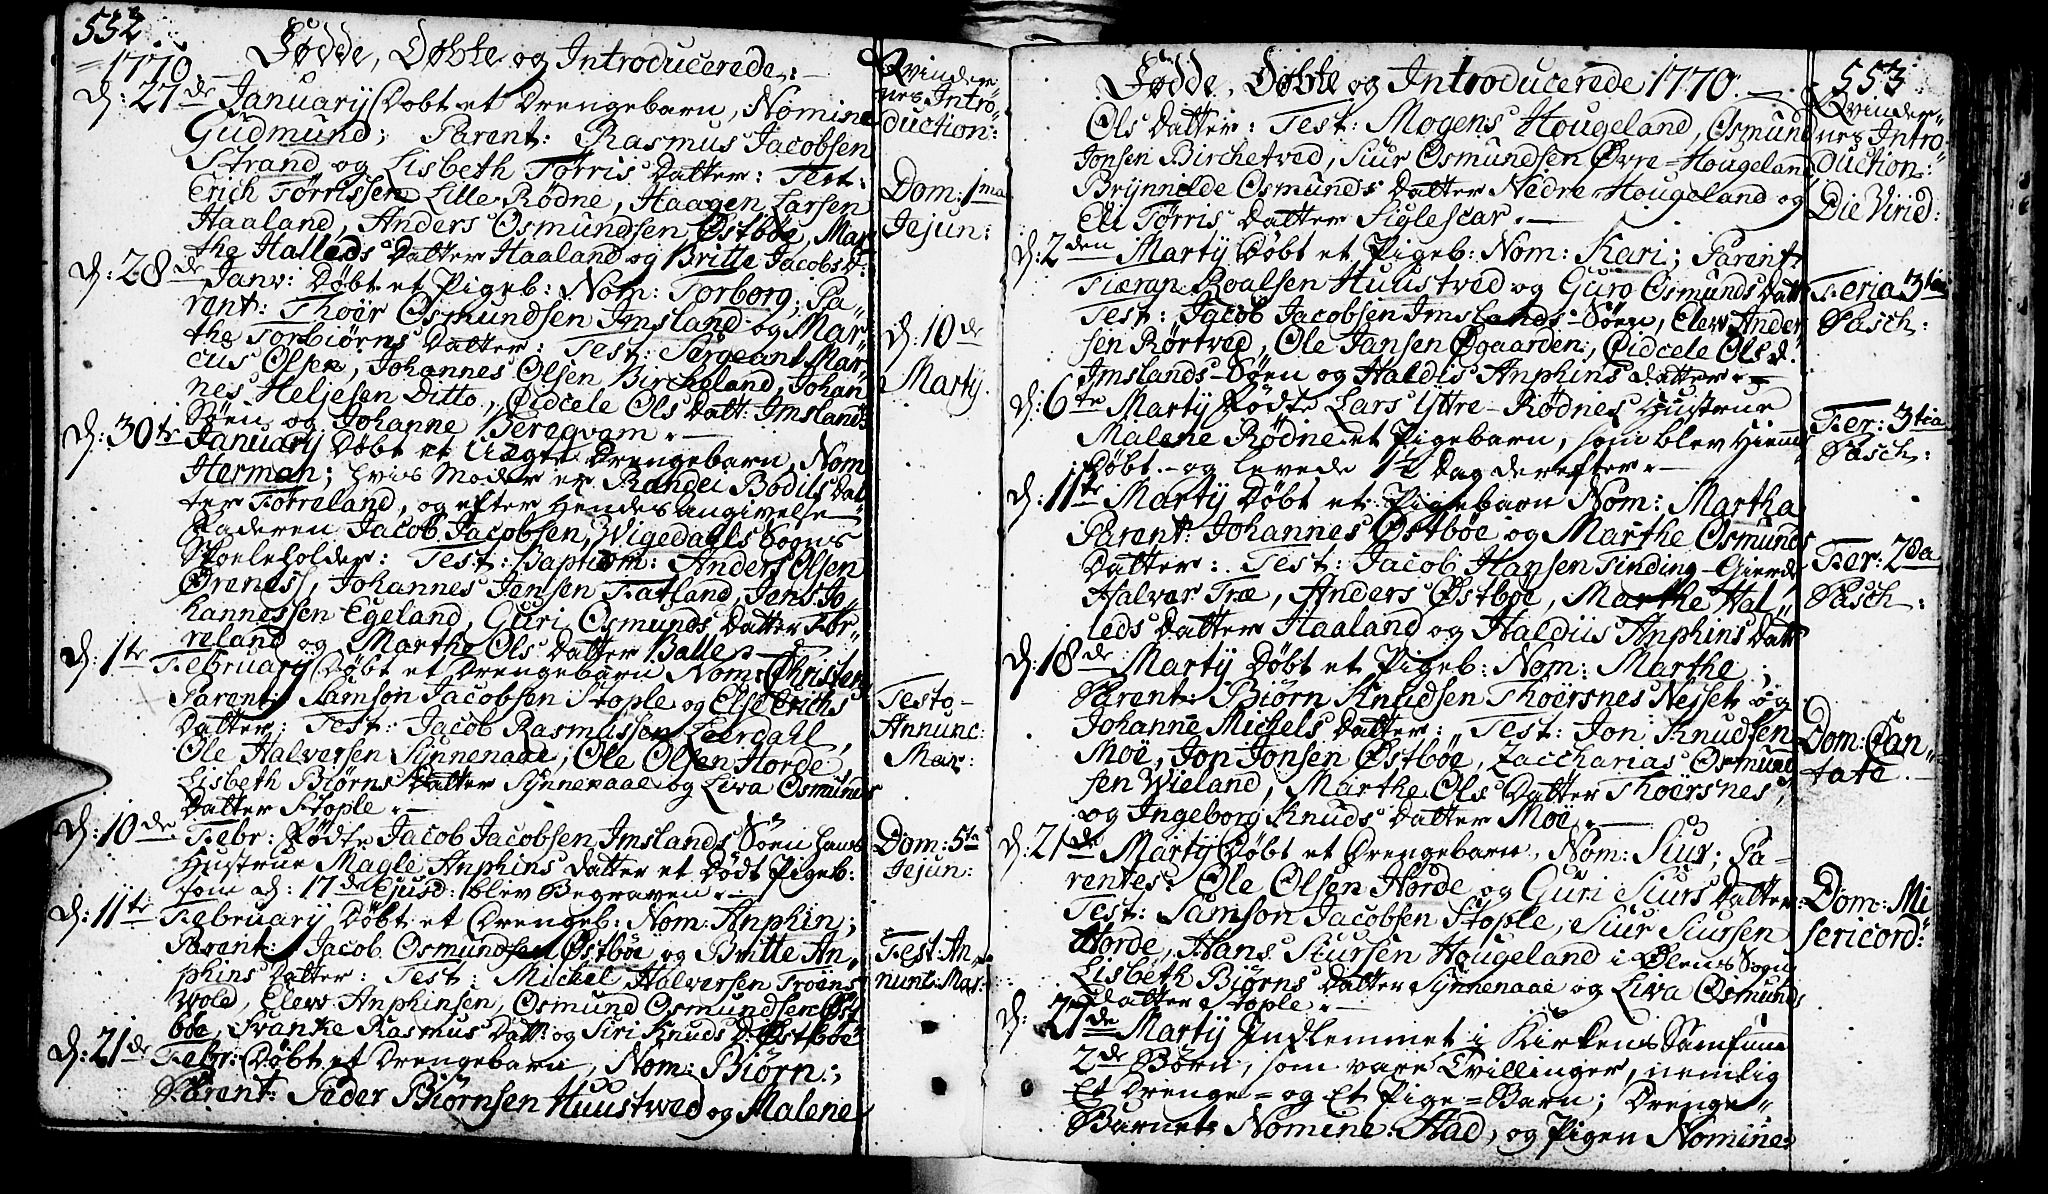 552.
1770.
Fødde, Døbte og Introducerede:
Qvinder-
nes Intro-
duction:
d: 27de Januarij Døbt et Drengebarn, Nomine
Gudmund; Parent: Rasmus Jacobsen
Strand og Lisbeth Tørris Datter: Test:
Erich Tørrissen Lille Rødne, Haagen Larsen
Haaland, Anders Osmundsen Østbøe, Mar-
the Halleds Datter Haaland og Britte Jacobs D:
Dom: 1ma
Jejun:
d: 28de Janv: Døbt et Pigeb: Nom: Torborg; Pa-
rent: Thoer Osmundsen Imsland og Mar-
the Torbiørns Datter: Test: Sergeant Mar-
cus Olsen, Johannes Olsen Bircheland, Johan-
nes Heljesen Ditto, Cidcele Ols Datt: Imslands
Søen og Johanne Beregvam.
d: 10de
Martij.
d: 30te Januarij Døbt et Uægte Drengebarn, Nom:
Herman; hvis Moder er Randei Bodils Dat-
ter Tørreland, og efter Hendes angivelse
Faderen Jacob Jacobsen, Wigedahls Sogns
Skoleholder: Test: Baptism: Anders Olsen
Ørenes, Johannes Jensen Fatland, Jens Jo-
hannessen Egeland, Guri Osmunds Datter Tør-
reland og Marthe Ols Datter Balle.
d: 1te Februarij Døbt et Drengebarn Nom: Christen
Parent: Samson Jacobsen Stople og Else Erichs
Datter: Test: Jacob Rasmussen Leerdahl,
Ole Halversen Sÿnnenaae, Ole Olsen Horde
Lisbeth Biørns Datter Sÿnnenaae og Liva Osmunds
Datter Stople.
Festo
Annunc:
Mar:
d: 10de Febr: Fødte Jacob Jacobsen Imslands Søen hans
Hustrue Magle Anphins Datter et Dødt Pigeb:
som d: 17de Ejusd: blev Begraven.
Dom: 5ta
Jejun:
d: 11te Februarij Døbt et Drengeb: Nom: Anphin;
Parent: Jacob Osmundsen Østbøe og Britte An-
phins Datter: Test: Michel Halversen Trøens-
wold, Elew Anphinsen, Osmund Osmundsen Øst-
bøe, Svanke Rasmus Datt: og Siri Knuds D: Østbøe
Fest: An-
nunt: Mar:
d: 21de Febr: Døbt et Drengebarn, Nom: Biørn;
Parent: Peder Biørnsen Huustved og Malene
553
Fødde, Døbte og Introducerede 1770.
Qvinder-
nes Intro-
duction:
Ols Datter: Test: Mogens Hougeland, Osmund
Jonsen Birchetved, Siur Osmundsen Øvre-Hougeland
Brÿnnilde Osmunds Datter Nedre Hougeland og
Eli Tørris Datter Siglescar.
Die Virid:
d: 2den Martij Døbt et Pigeb: Nom: Kari; Parent:
Tieran Roalsen Huustved og Guro Osmunds Datt
Test: Jacob Jacobsen Imslands-Søen, Elew Ander-
sen Rørtved, Ole Jansen Øgaarden, Cidcele Ols D:
Imslands-Søen og Haldis Anphins Datter.
Feria 3tia
Pasch:
d: 6te Martij Fødte Lars Yttre-Rødnes Hustrue
Malene Rødne et Pigebarn, som blev Hieme-
Døbt og levede 1½ Dag derefter.
Fer: 3tia
Pasch:
d: 11te Martij Døbt et Pigebarn Nom: Martha
Parent: Johannes Østbøe og Marthe Osmunds
Datter: Test: Jacob Hansen Tinding-Gierde
Halver Træ, Anders Østbøe, Marthe Hal-
leds Datter Haaland og Haldiis Anphins Datt
Fer: 2da
Pasch:
d: 18de Martij Døbt et Pigeb: Nom: Marthe;
Parent: Biørn Knudsen Thoersnes Nesset og
Johanne Michels Datter: Test: Jon Knudsen
Moe, Jon Jonsen Østbøe, Zaccharias Osmund-
sen Wieland, Marthe Ols Datter Thoersnes,
og Ingeborg Knuds Datter Moe.
Dom: Can-
tate.
d: 21de Martij Døbt et Drengebarn, Nom: Siur; Pa-
rentes: Ole Olsen Horde og Guri Siurs Datter:
Test: Samson Jacobsen Stople, Siur Siursen
Horde, Hans Siursen Hougeland i Ølens Sogn,
Lisbeth Biørns Datter Sÿnnenaae og Liva Osmunds
Datter Stople.
Dom: Mi-
sericord:
d: 27de Martij Indlemmet i Kirkens Samfund
2de Børn, som vare Tvillinger, nemlig
Et Drenge- og Et Pige-Barn; Drenge-
Barnet Nomine Aad, og Pigen Nomine: